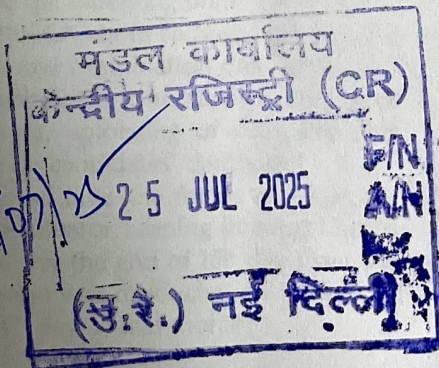 मंडल कार्यालय
केन्द्रीय रजिस्ट्री (CR)
25 JUL 2025
F/N
A/N
(उ.रे.) नई दिल्ली